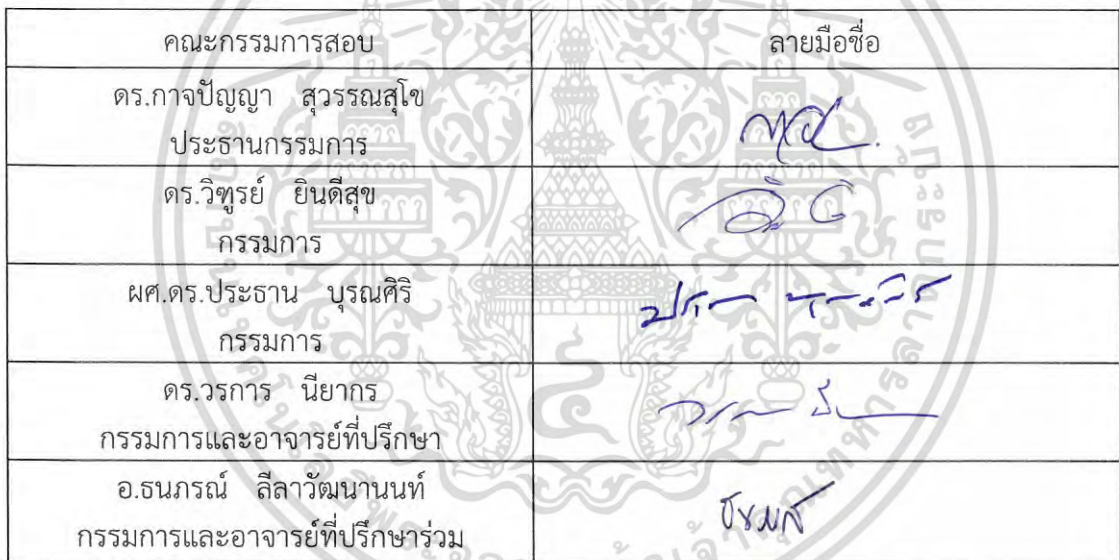 คณะกรรมการสอบ ลายมือชื่อ
ดร.กาจปัญญา สุวรรณสุโข
ประธานกรรมการ
ดร.วิฑูรย์ ยินดีสุข
กรรมการ
ผศ.ดร.ประธาน บุรณศิริ
กรรมการ
ดร.วรการ นียากร
กรรมการและอาจารย์ที่ปรึกษา
อ.ธนภรณ์ ลีลาวัฒนานนท์
กรรมการและอาจารย์ที่ปรึกษาร่วม